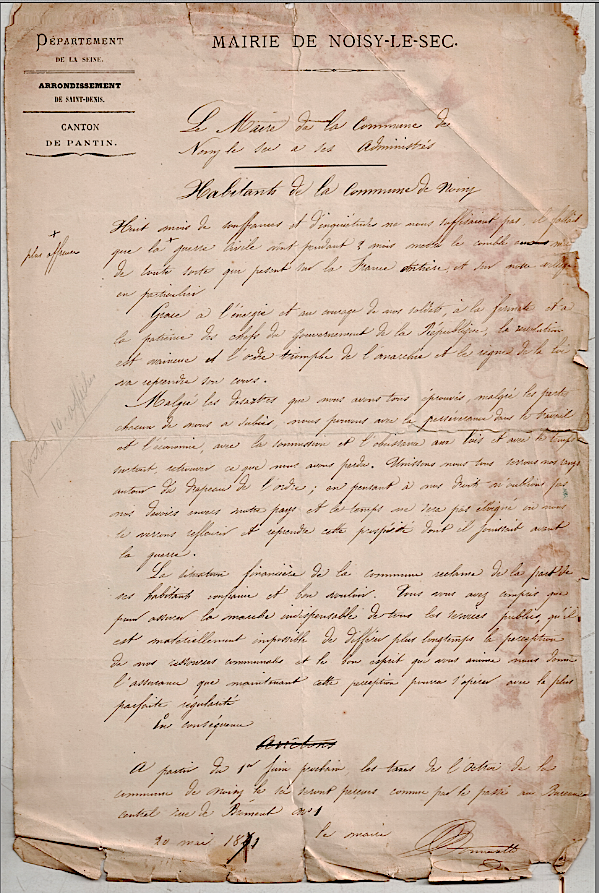 DÉPARTEMENT
DE LA SEINE.
ARRONDISSEMENT
DE SAINT-DENIS.
CANTON
DE PANTIN.
MAIRIE DE NOISY-LE-SEC.
Le Maire de la Commune de
Noisy le sec a ses Administrés
Habitants de la Commune de Noisy
Huit mois de souffrances et d'inquiétudes ne nous suffisaient pas, il fallait
+
plus affreuse
que la + guerre civile vint pendant 2 mois mettre le comble
de toute sorte que pesent sur la France entière, et sur notre
en particulier
Grace a l'énergie et au courage de nos soldats, à la fermeté et à
la patience des chefs du Gouvernement de la République, la révolution
est vaincue et l'ordre triomphe de l'anarchie et le règne de la loi
va reprendre son cours.
Malgré les désastres que nous avons tous éprouvés, malgré les pertes
chacun de nous a subies, nous pouvons avec la perséverance dans le travail
et l'économie, avec la soumission et l'obeissance aux lois et avec le temps
surtout, retrouver ce que nous avons perdu. Unissons nous tous serrons nos rangs
autour du drapeau de l'ordre ; en pensant à nos droits n'oublions pas
nos devoirs envers notre pays et le temps ne sera pas éloigné où nous
le verrons refleurir et reprendre cette prospérité dont il jouissait avant
la guerre.
La situation financière de la commune réclame de la part de
ses habitants confiance et bon vouloir. Vous avez compris que
pour assurer la marche indispensable de tous les services publics, qu'il
est matériellement impossible de différer plus longtemps la perception
de nos ressources communales et le bon esprit que vous anime nous donne
l'assurance que maintenant cette perception pourra s'operer avec la plus
parfaite régularité
En conséquence
A partir du 1er Juin prochain les taxes de l'Octroi de la
commune de Noisy le sec seront perçues comme par le passé au Bureau
central rue de no 1
20 mai 1871
le maire